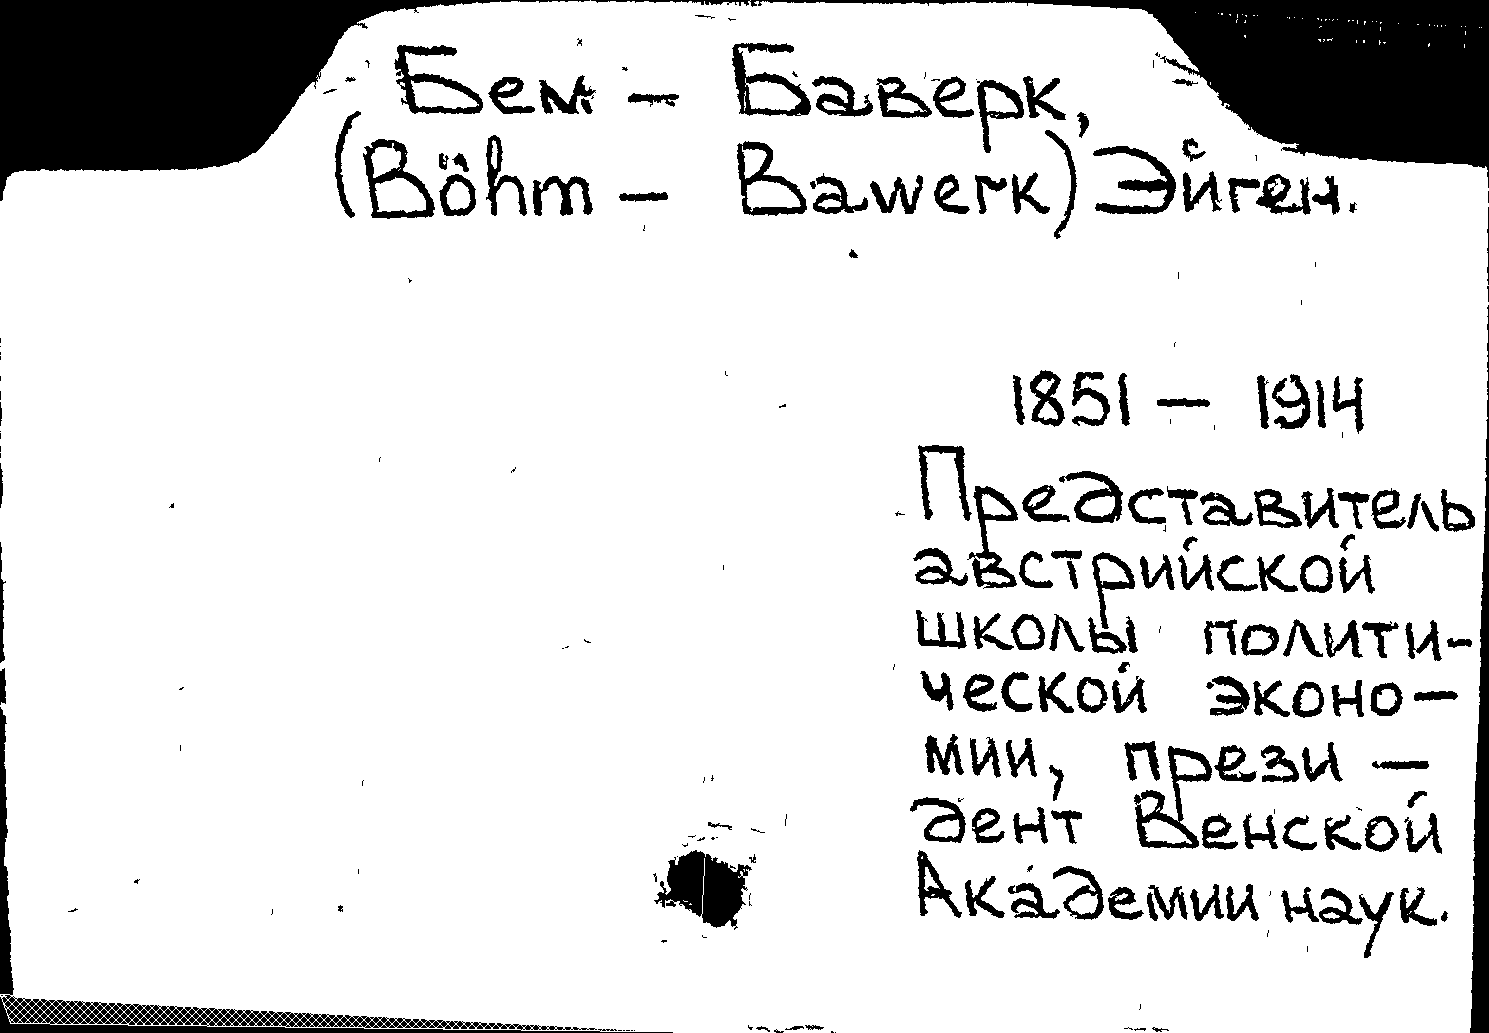 Бем - Баверк,
(Böhm - Bawerk) Эйген.
1851 - 1914
Представитель
австрийской
школы полити-
ческой эконо-
мии, прези-
дент Венской
Академии наук.